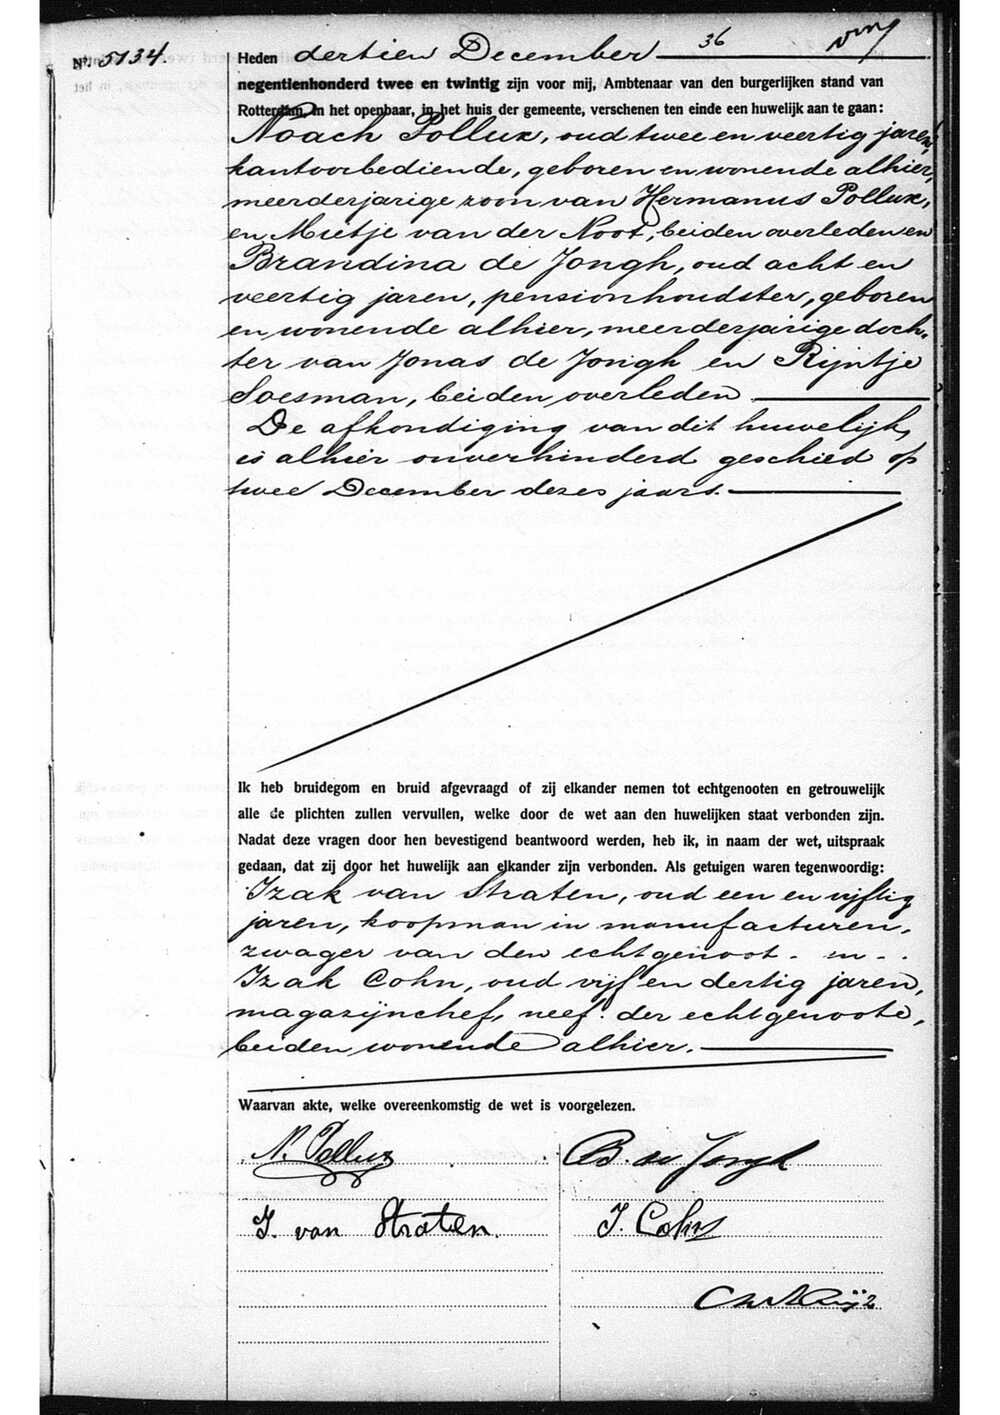 No. 5134.
36
Heden dertien December
negentienhonderd twee en twintig zijn voor mij, Ambtenaar van den burgerlijken stand van
Rotterdam, in het openbaar, in het huis der gemeente, verschenen ten einde een huwelijk aan te gaan:
Noach Pollux, oud twee en veertig jaren,
kantoorbediende, geboren en wonende alhier,
meerderjarige zoon van Hermanus Pollux,
en Mietje van der Noot, beiden overleden en
Brandina de Jongh, oud acht en
veertig jaren, pensionhoudster, geboren
en wonende alhier, meerderjarige doch-
ter van Jonas de Jongh en Rijntje
Soesman, beiden overleden
De afkondiging van dit huwelijk,
is alhier onverhinderd geschied op
twee December dezes jaars.
Ik heb bruidegom en bruid afgevraagd of zij elkander nemen tot echtgenooten en getrouwelijk
alle de plichten zullen vervullen, welke door de wet aan den huwelijken staat verbonden zijn.
Nadat deze vragen door hen bevestigend beantwoord werden, heb ik, in naam der wet, uitspraak
gedaan, dat zij door het huwelijk aan elkander zijn verbonden. Als getuigen waren tegenwoordig:
Izak van Straten, oud een en vijftig
jaren, koopman in manufacturen,
zwager van den echtgenoot. en
Izak Cohn, oud vijf en dertig jaren,
magazijnchef, neef der echtgenoote,
beiden wonende alhier.
Waarvan akte, welke overeenkomstig de wet is voorgelezen.
N. Pollux B. de Jongh
I. van Straten. I. Cohn